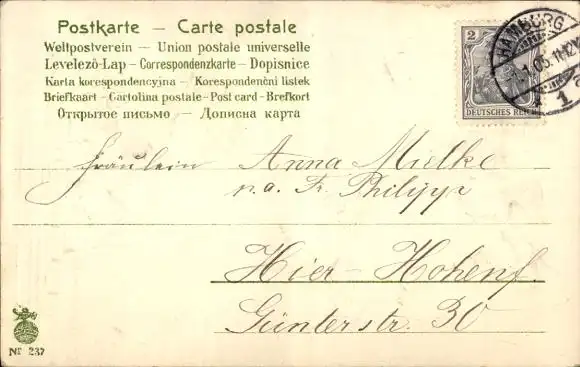 Postkarte — Carte postale
Weltpostverein — Union postale universelle
Levelezö-Lap – Correspondenzkarte – Dopisnice
Karta korespondencyjna – Korespondenčni listek
Briefkaart – Cartolina postale – Post card – Brefkort
Открытое письмо — Дописна карта
2
DEUTSCHES REICH
HAMBURG
1
Fräulein Anna Mielke
p.a. Fr. Philipp
Hier – Hohenf.
Günterstr. 30
Nr 237